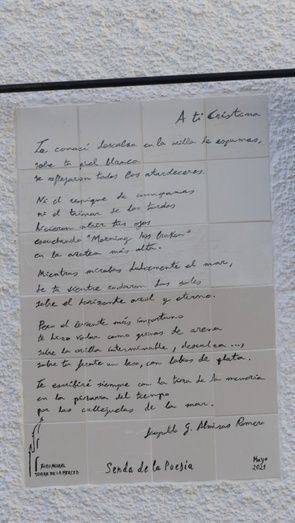 A ti Cristana
Te conocí descalza en la orilla de espumas,
sobre tu piel blanca
se reflejaron todos los atardeceres.
Ni el repique de campanas
ni el trinar de los tordos
hicieron abrir tus ojos
escuchando "Morning has broken"
en la azotea más alta.
Mientras mirabas dulcemente el mar,
de tu vientre cuatro soles
sobre el horizonte azul y eterno.
Pero el levante más inoportuno
te hizo volar como granos de arena
sobre la orilla interminable, descalza...,
sobre tu frente un beso, con labios de plata.
Te escribiré siempre con la tiza de la memoria
en la pizarra del tiempo
por las callejuelas de la mar.
G. Romero
TORRE DE LA MERCED
Senda de la Poesía
Mayo
2021